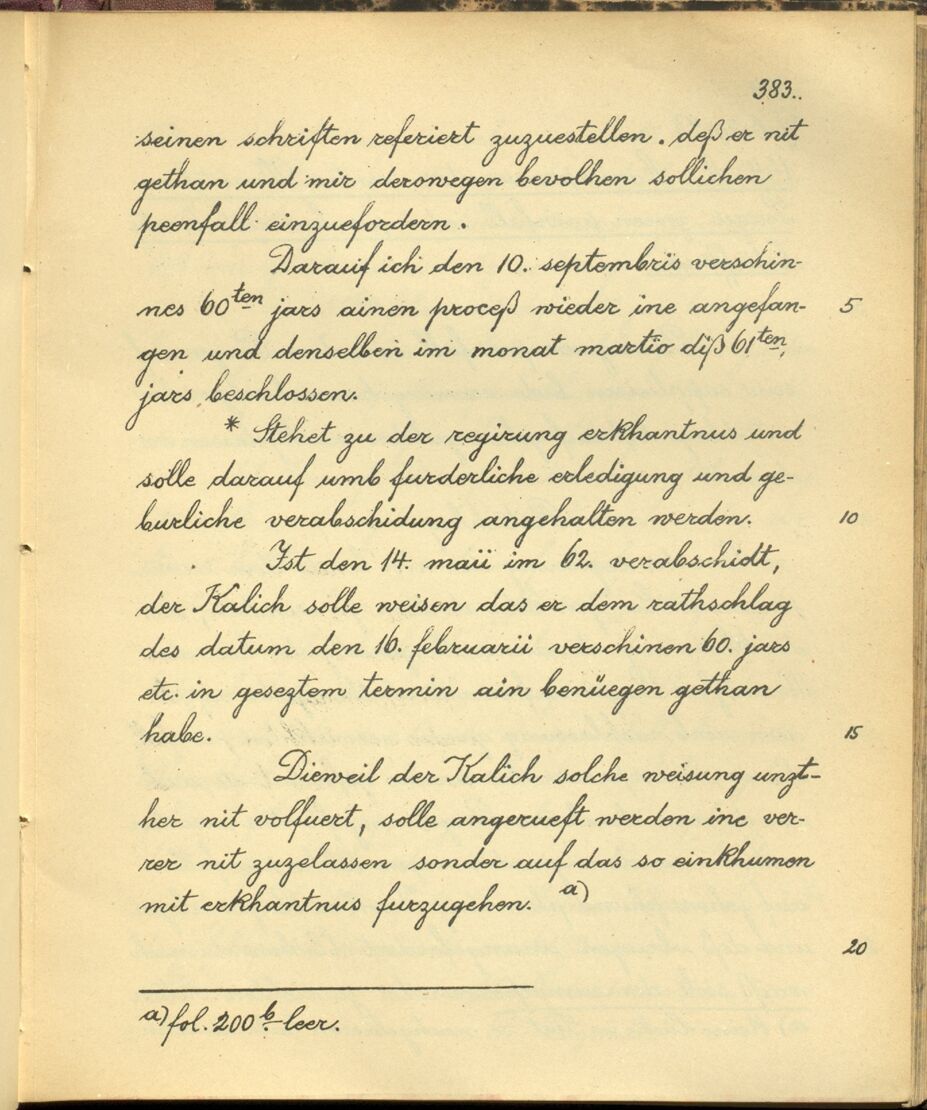 383..
seinen schriften referiert zuzuestellen. deß er nit
gethan und mir derowegen bevolhen sollichen
peenfall einzuefordern.
Darauf ich den 10. septembris verschin-
nes 60ten jars ainen proceß wieder ine angefan- 5
gen und denselben im monat martio diß 61ten
jars beschlossen.
* Stehet zu der regirung erkhantnus und
solle darauf umb furderliche erledigung und ge-
burliche verabschidung angehalten werden. 10
Ist den 14. maii im 62. verabschidt,
der Kalich solle weisen das er dem rathschlag
des datum den 16. februarii verschinen 60. jars
etc. in geseztem termin ain benüegen gethan
habe. 15
Dieweil der Kalich solche weisung unzt-
her nit volfuert, solle angerueft werden ine ver-
rer nit zuzelassen sonder auf das so einkhumen
mit erkhantnus furzugehen. a)
20
a) fol. 200b leer.